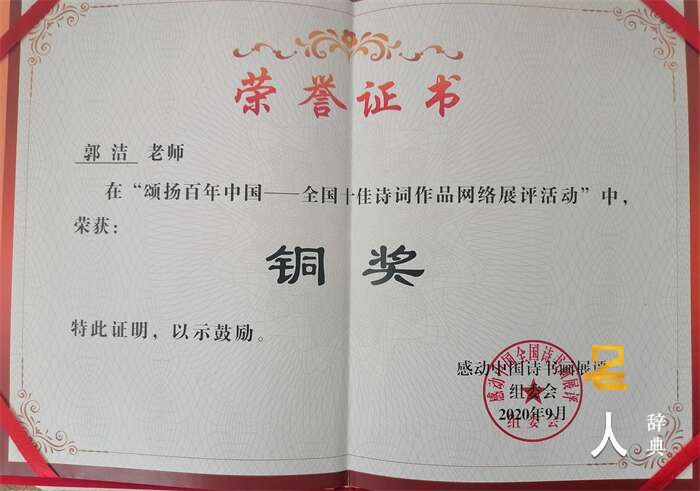 荣誉证书
郭洁 老师
在“颂扬百年中国——全国十佳诗词作品网络展评活动”中，
荣获：
铜奖
特此证明，以示鼓励。
感动中国诗书画展评
组委会
2020年9月
感动中国全国诗书画展评
组委会
名
人
辞典